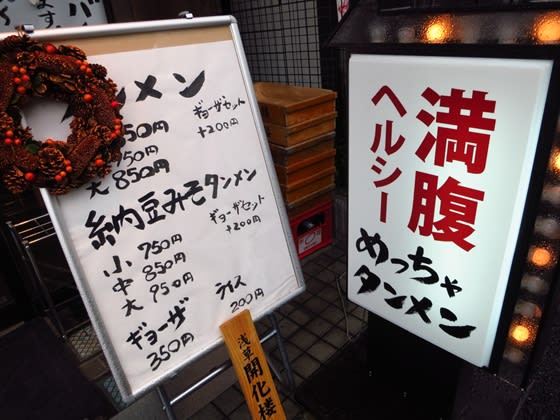 タンメン
650円
750円
大 850円
ギョーザセット
+200円
納豆みそタンメン
小 750円
中 850円
大 950円
ギョーザセット
+200円
ギョーザ
350円
ライス
200円
浅草 開化楼
満腹
ヘルシー
めっちゃ
タンメン